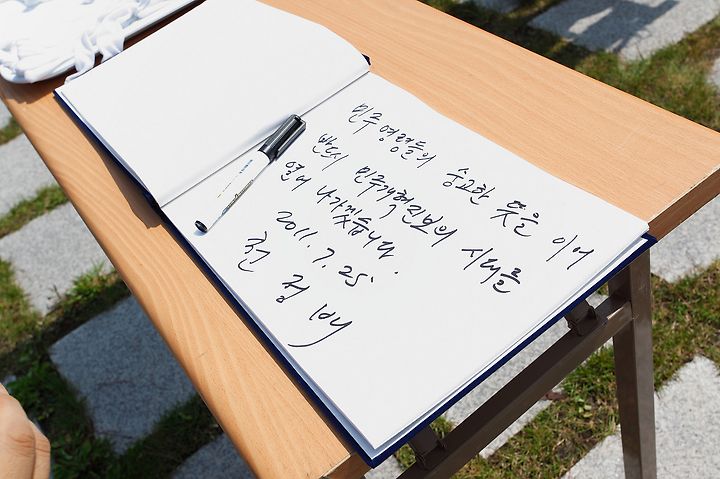 민주 영령들의 숭고한 뜻을 이어
반드시 민주개혁진보의 시대를
열어 나가겠습니다.
2011. 7. 25.
천 정 배